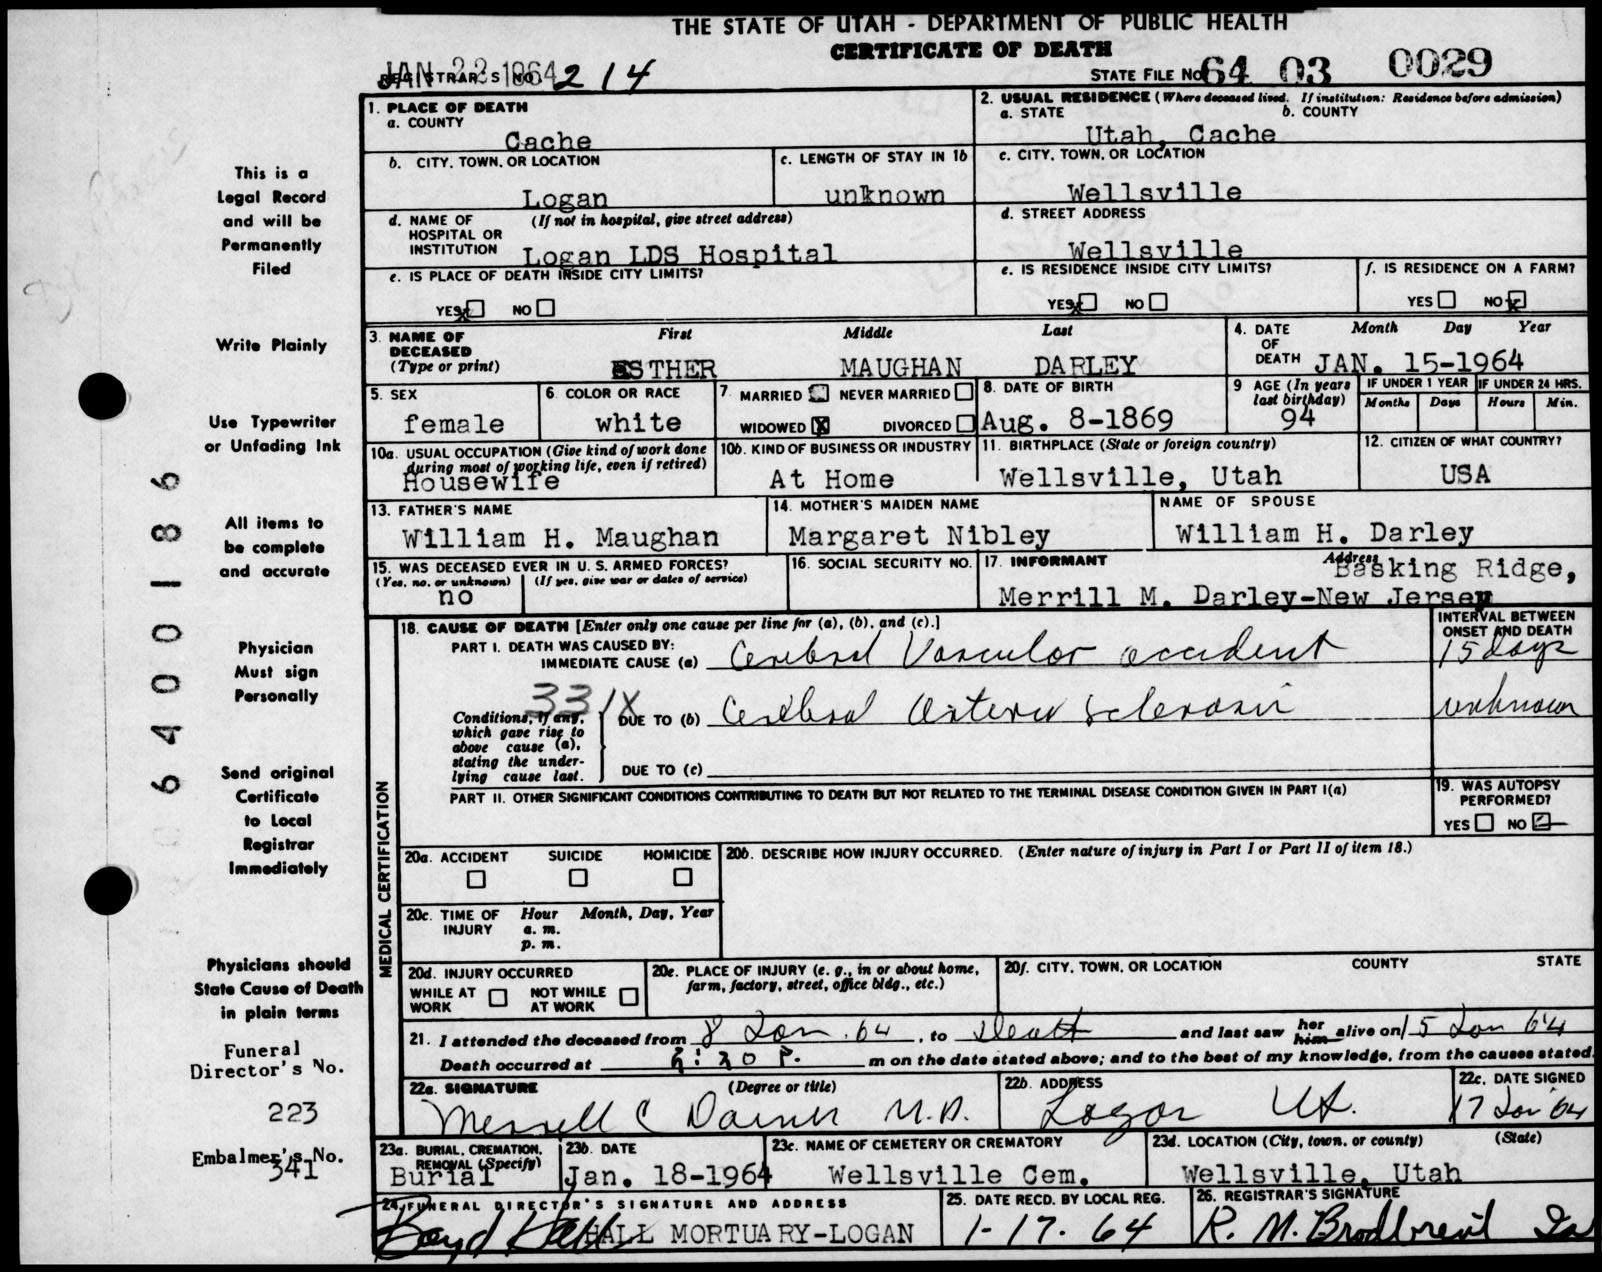 THE STATE OF UTAH - DEPARTMENT OF PUBLIC HEALTH
CERTIFICATE OF DEATH
JAN 22 1964
REGISTRAR'S NO. 214
STATE FILE No. 64 03 0029
This is a
Legal Record
and will be
Permanently
Filed
Write Plainly
Use Typewriter
or Unfading Ink
All items to
be complete
and accurate
Physician
Must sign
Personally
Send original
Certificate
to Local
Registrar
Immediately
Physicians should
State Cause of Death
in plain terms
Funeral
Director's No.
223
Embalmer's No.
341
6400186
1. PLACE OF DEATH
a. COUNTY
Cache
2. USUAL RESIDENCE (Where deceased lived. If institution: Residence before admission)
a. STATE b. COUNTY
Utah, Cache
b. CITY, TOWN, OR LOCATION
Logan
c. LENGTH OF STAY IN 1b
unknown
c. CITY, TOWN, OR LOCATION
Wellsville
d. NAME OF (If not in hospital, give street address)
HOSPITAL OR
INSTITUTION Logan LDS Hospital
d. STREET ADDRESS
Wellsville
e. IS PLACE OF DEATH INSIDE CITY LIMITS?
YES x NO
e. IS RESIDENCE INSIDE CITY LIMITS?
YES x NO
f. IS RESIDENCE ON A FARM?
YES NO x
3. NAME OF First Middle Last
DECEASED
(Type or print) ESTHER MAUGHAN DARLEY
4. DATE Month Day Year
OF
DEATH JAN. 15-1964
5. SEX
female
6. COLOR OR RACE
white
7. MARRIED NEVER MARRIED
WIDOWED X DIVORCED
8. DATE OF BIRTH
Aug. 8-1869
9 AGE (In years
last birthday)
94
IF UNDER 1 YEAR IF UNDER 24 HRS.
Months Days Hours Min.
10a. USUAL OCCUPATION (Give kind of work done
during most of working life, even if retired)
Housewife
10b. KIND OF BUSINESS OR INDUSTRY
At Home
11. BIRTHPLACE (State or foreign country)
Wellsville, Utah
12. CITIZEN OF WHAT COUNTRY?
USA
13. FATHER'S NAME
William H. Maughan
14. MOTHER'S MAIDEN NAME
Margaret Nibley
NAME OF SPOUSE
William H. Darley
15. WAS DECEASED EVER IN U. S. ARMED FORCES?
(Yes, no, or unknown) (If yes, give war or dates of service)
no
16. SOCIAL SECURITY NO.
17. INFORMANT Address
Basking Ridge,
Merrill M. Darley-New Jersey
MEDICAL CERTIFICATION
18. CAUSE OF DEATH [Enter only one cause per line for (a), (b), and (c).]
INTERVAL BETWEEN
ONSET AND DEATH
PART I. DEATH WAS CAUSED BY:
IMMEDIATE CAUSE (a) Cerebral Vascular accident 15 days
331X
Conditions, if any,
which gave rise to
above cause (a),
stating the under-
lying cause last.
DUE TO (b) Cerebral Arterio sclerosis unknown
DUE TO (c)
PART II. OTHER SIGNIFICANT CONDITIONS CONTRIBUTING TO DEATH BUT NOT RELATED TO THE TERMINAL DISEASE CONDITION GIVEN IN PART I(a)
19. WAS AUTOPSY
PERFORMED?
YES NO
20a. ACCIDENT SUICIDE HOMICIDE
20b. DESCRIBE HOW INJURY OCCURRED. (Enter nature of injury in Part I or Part II of item 18.)
20c. TIME OF Hour Month, Day, Year
INJURY a. m.
p. m.
20d. INJURY OCCURRED
WHILE AT NOT WHILE
WORK AT WORK
20e. PLACE OF INJURY (e. g., in or about home,
farm, factory, street, office bldg., etc.)
20f. CITY, TOWN, OR LOCATION COUNTY STATE
21. I attended the deceased from 8 Jan. 64, to Death and last saw her him alive on 15 Jan 64
Death occurred at :20 P. m on the date stated above; and to the best of my knowledge, from the causes stated.
22a. SIGNATURE (Degree or title)
Merrill C Daines M.D.
22b. ADDRESS
Logan Ut.
22c. DATE SIGNED
17 Jan 64
23a. BURIAL, CREMATION,
REMOVAL (Specify)
Burial
23b. DATE
Jan. 18-1964
23c. NAME OF CEMETERY OR CREMATORY
Wellsville Cem.
23d. LOCATION (City, town, or county) (State)
Wellsville, Utah
24. FUNERAL DIRECTOR'S SIGNATURE AND ADDRESS
Boyd Hall HALL MORTUARY-LOGAN
25. DATE RECD. BY LOCAL REG.
1-17-64
26. REGISTRAR'S SIGNATURE
R. M. Brodbreit